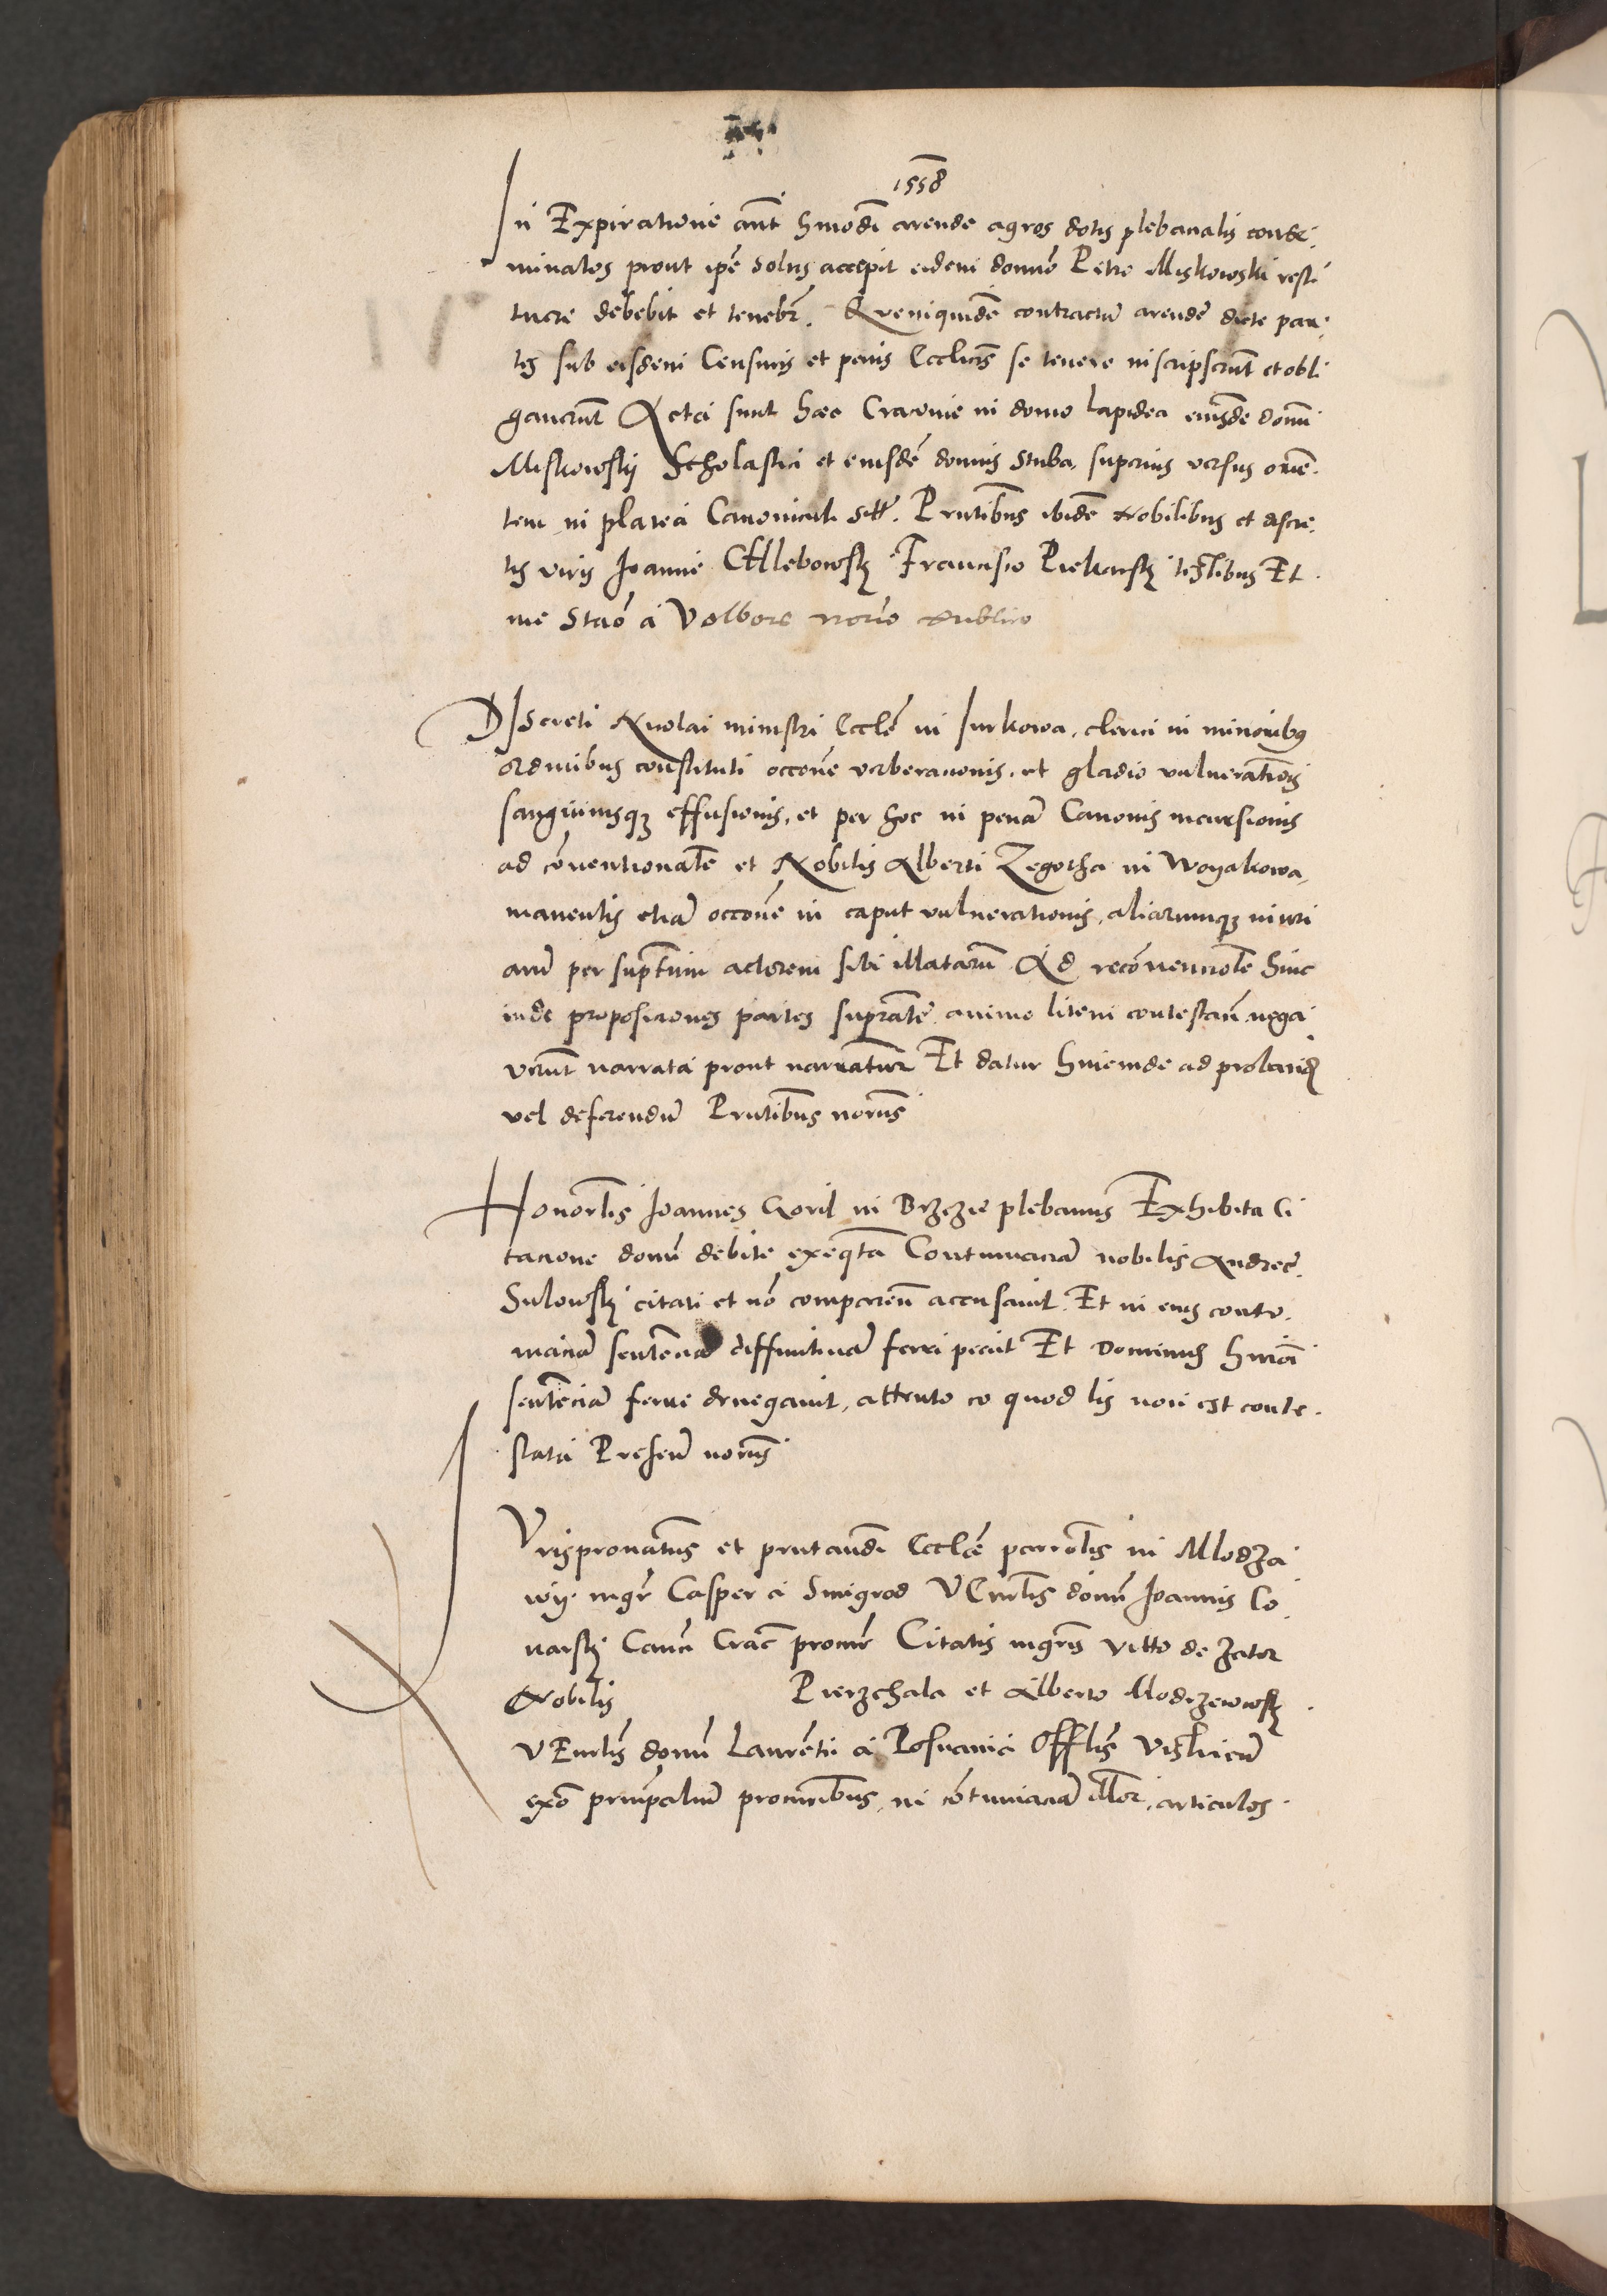 1558
In Expiratione aūt hmōdi arende agros dotis plebanalis conse
minatos prout ipē solus accepit eidem domino Petro Miskowski resti
tuere debebit et tenebr̄. Quemquidē contractū arende dicte par
tes sub eisdem Censuris et penis Ecclicīs se tenere inscripserūt et obli
gauerūt Acta sunt hæc Cracouie in domo lapidea eiusdē domī
Miskowsky Scholastici et eiusdē domus Stuba superius versus orien
tem in platea Canonicali sitt. Prntibus ibidē Nobilibus et discre
tis viris Joanne Chlebowsky Francisco Piekarsky testibus Et
me Stāo a Volborz notrio Publico
Discreti Nicolai ministri Ecclē in Jurkowa, clerici in minoribus
ordinibus constituti occone verberationis, et gladio vulnerationis
sanguinisque effusionis, et per hoc in penā Canonis incursionis
ad cōuentionalē et Nobilis Alberti Zegotha in Woyakowa
manentis etiā occone in caput vulnerationis, aliarumque iniuri
arū per suprtum actorem sibi illatarū Ad recōuentiōlē hinc
inde propositiones partes supratē animo litem contestan̄ nega
verūt narrata prout narrātur Et datur hincinde ad proband
vel deferendū Prntibus norūs
Honorlis Joannes Goril in Brzezie plebanus Exhibita Ci
tacione domī debite exeqta Contumaciā nobilis Andreē
Sulowsky citati et nō comparen̄ accusauit Et in eius contu
maciā sentenciā diffinitiuā ferri peciit Et Dominus hmōi
sentenciā ferre denegauit, attento eo quod lis non est conte
stata Presen̄ norūs
Jurispronatus et prntandi Ecclē parrolis in Mlodza
wy mgr Casper a Smigrod VEnrlis domī Joannis Co
narsky Canci Crac procur Citatis mgris Vitto de Zator
Nobilis Pierzchala et Alberto Modrzewowsky
VEnrlis domī Laurētii a Posnania Offlis Visliciē
exō principaliū procuribus, in cōtumaciā illor, articulos